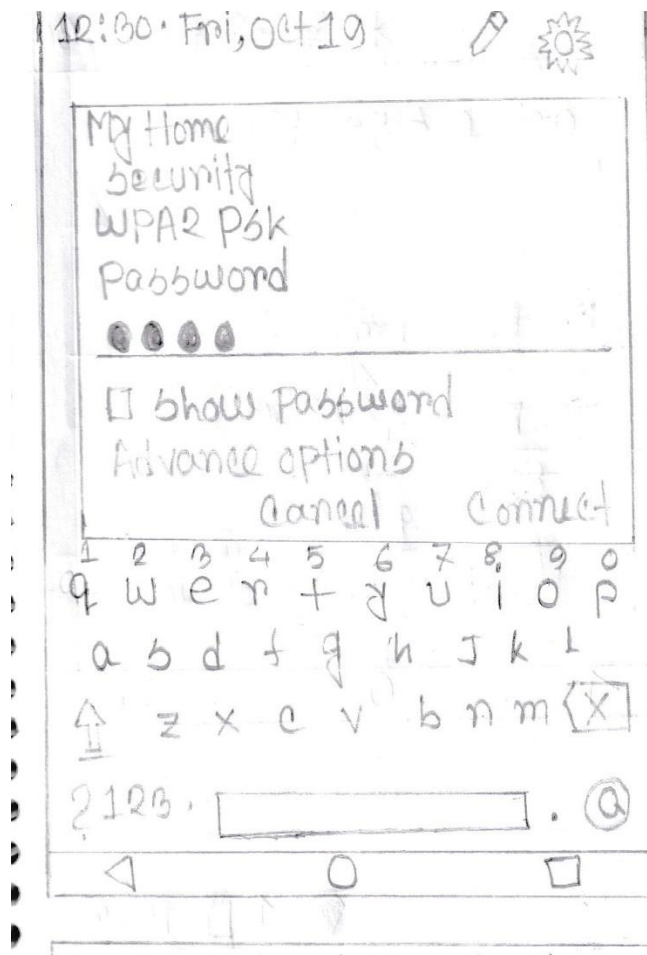 12:30 · Fri, Oct 19
My Home
Security
WPA2 PSK
Password
Show Password
Advance options
Cancel Connect
1 2 3 4 5 6 7 8 9 0
q w e r t y u i o p
a s d f g h J k L
z x c v b n m X
?123 . . @